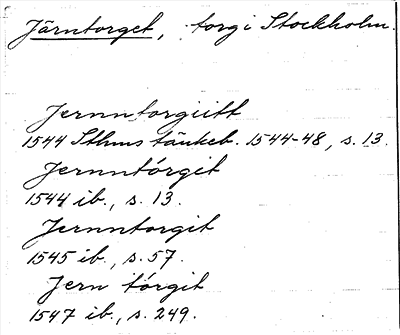 Järntorget, torg i Stockholm.
Jernntorgiitt
1544 Sthms tänkeb. 1544-48, s. 13.
Jernntórgit
1544 ib., s. 13.
Jernntorgit
1545 ib., s. 57.
Jern tórgit
1547 ib., s. 249.